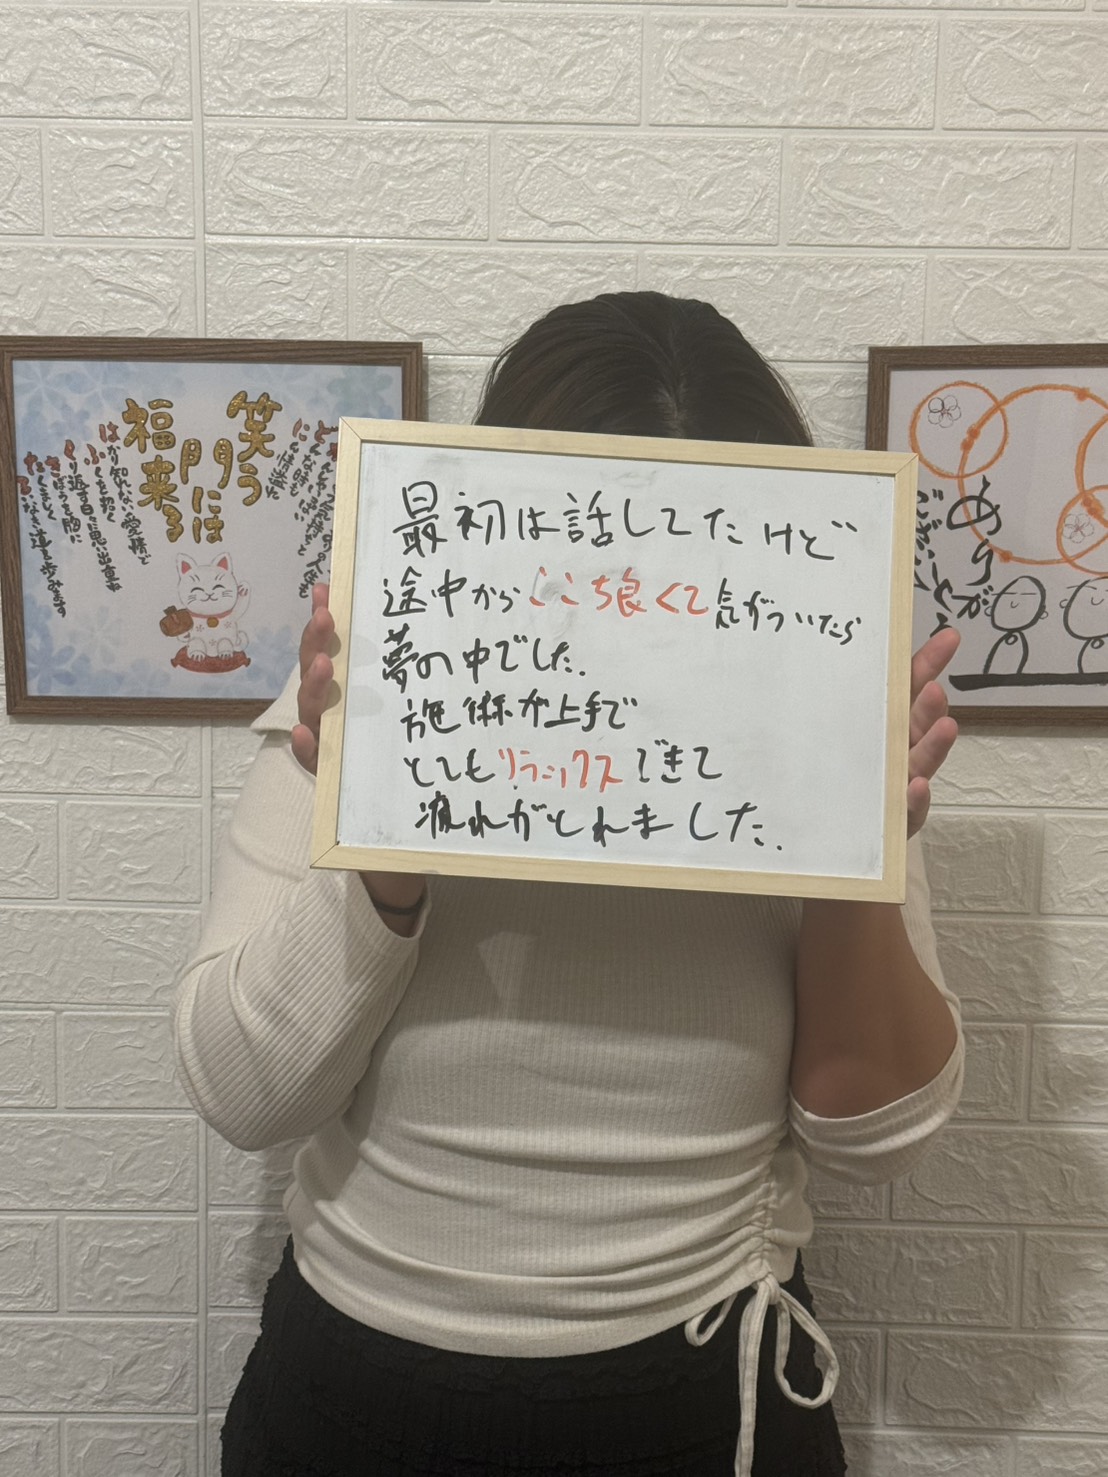 最初は話してたけど
途中からここち良くて気がついたら
夢の中でした.
施術が上手で
とてもリラックスできて
疲れがとれました.
笑う
門には
福来る
はかり知れない愛情で
ふくを招く
くり返す日々思い出重ね
きぼうを胸に
たくましく
ありが
ござい